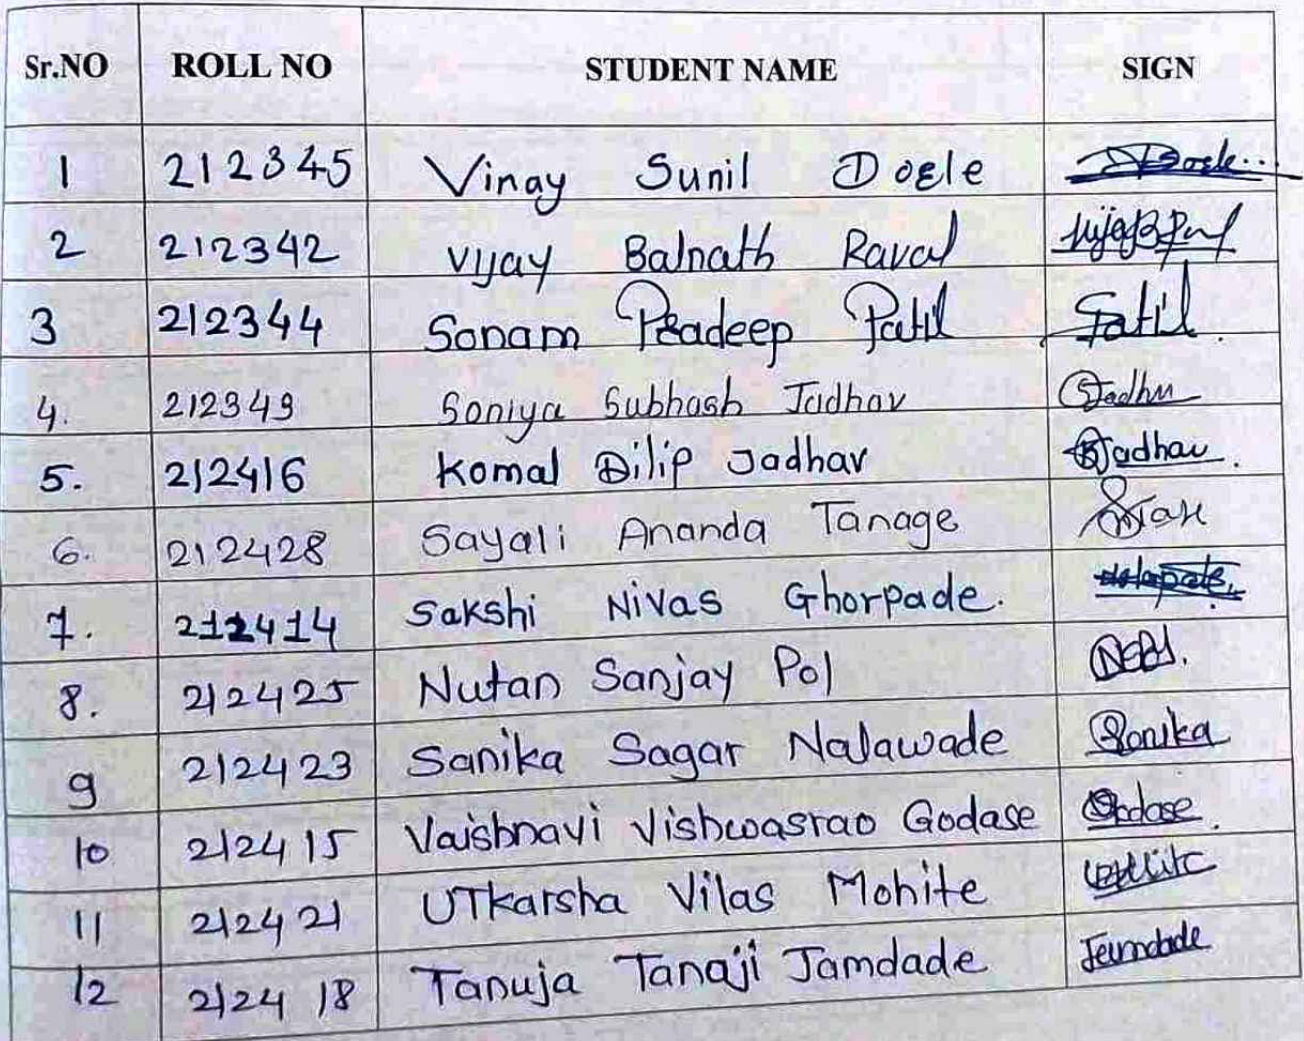 Sr.NO ROLL NO STUDENT NAME SIGN
1 212345 Vinay Sunil Dogle
2 212342 Vijay Balnath Raval
3 212344 Sonam Pradeep Patil Patil.
4. 212349 Soniya Subhash Jadhav
5. 212416 Komal Dilip Jadhav Jadhav.
6. 212428 Sayali Ananda Tanage
7. 212414 Sakshi Nivas Ghorpade.
8. 212425 Nutan Sanjay Pol
9 212423 Sanika Sagar Nalawade Sanika
10 212415 Vaishnavi Vishwasrao Godase Godase.
11 212421 UTkarsha Vilas Mohite
12 212418 Tanuja Tanaji Jamdade Jamdade